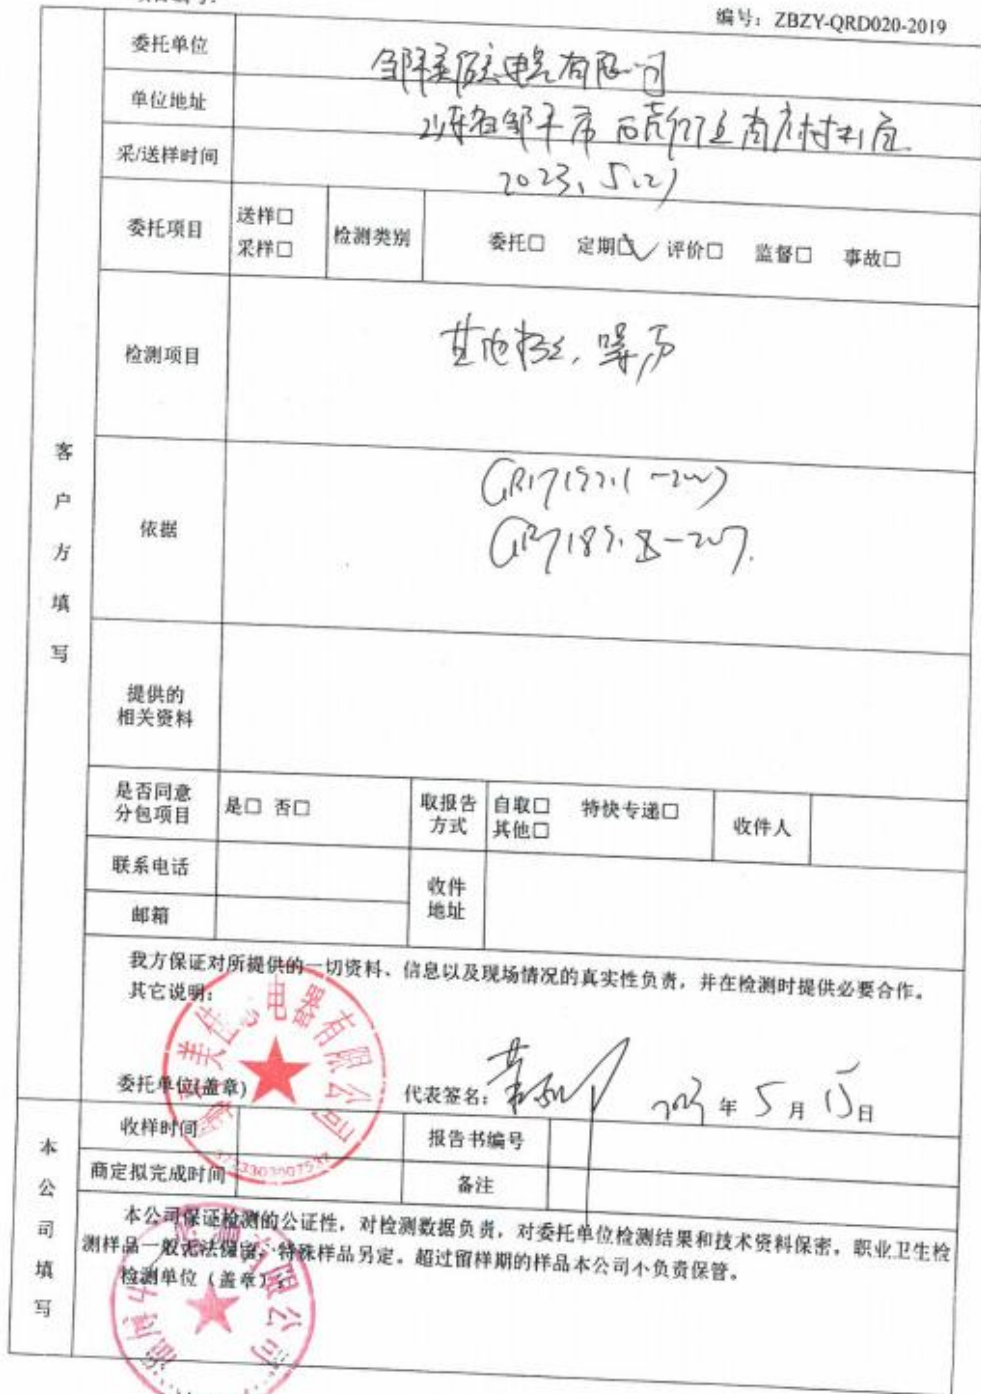 编号：ZBZY-QRD020-2019
委托单位
有限公司
单位地址
山东省邹平市
采/送样时间
2023.5.21
委托项目
送样□
采样□
检测类别
委托□ 定期☑ 评价□ 监督□ 事故□
检测项目
其他粉尘，噪声
客户方填写
依据
提供的
相关资料
是否同意
分包项目
是□ 否□
取报告
方式
自取□ 特快专递□
其他□
收件人
联系电话
收件
地址
邮箱
我方保证对所提供的一切资料、信息以及现场情况的真实性负责，并在检测时提供必要合作。
其它说明：
电器有限公司
委托单位(盖章)
代表签名：
2023年5月15日
本公司填写
收样时间
报告书编号
商定拟完成时间
备注
本公司保证检测的公证性，对检测数据负责，对委托单位检测结果和技术资料保密，职业卫生检
测样品一般无法保留，特殊样品另定。超过留样期的样品本公司不负责保管。
检测单位（盖章）：
有限公司